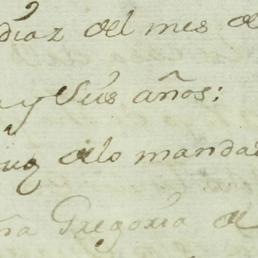 diaz del mes de
y Sus años:
que delo manda
ña Gregoria de